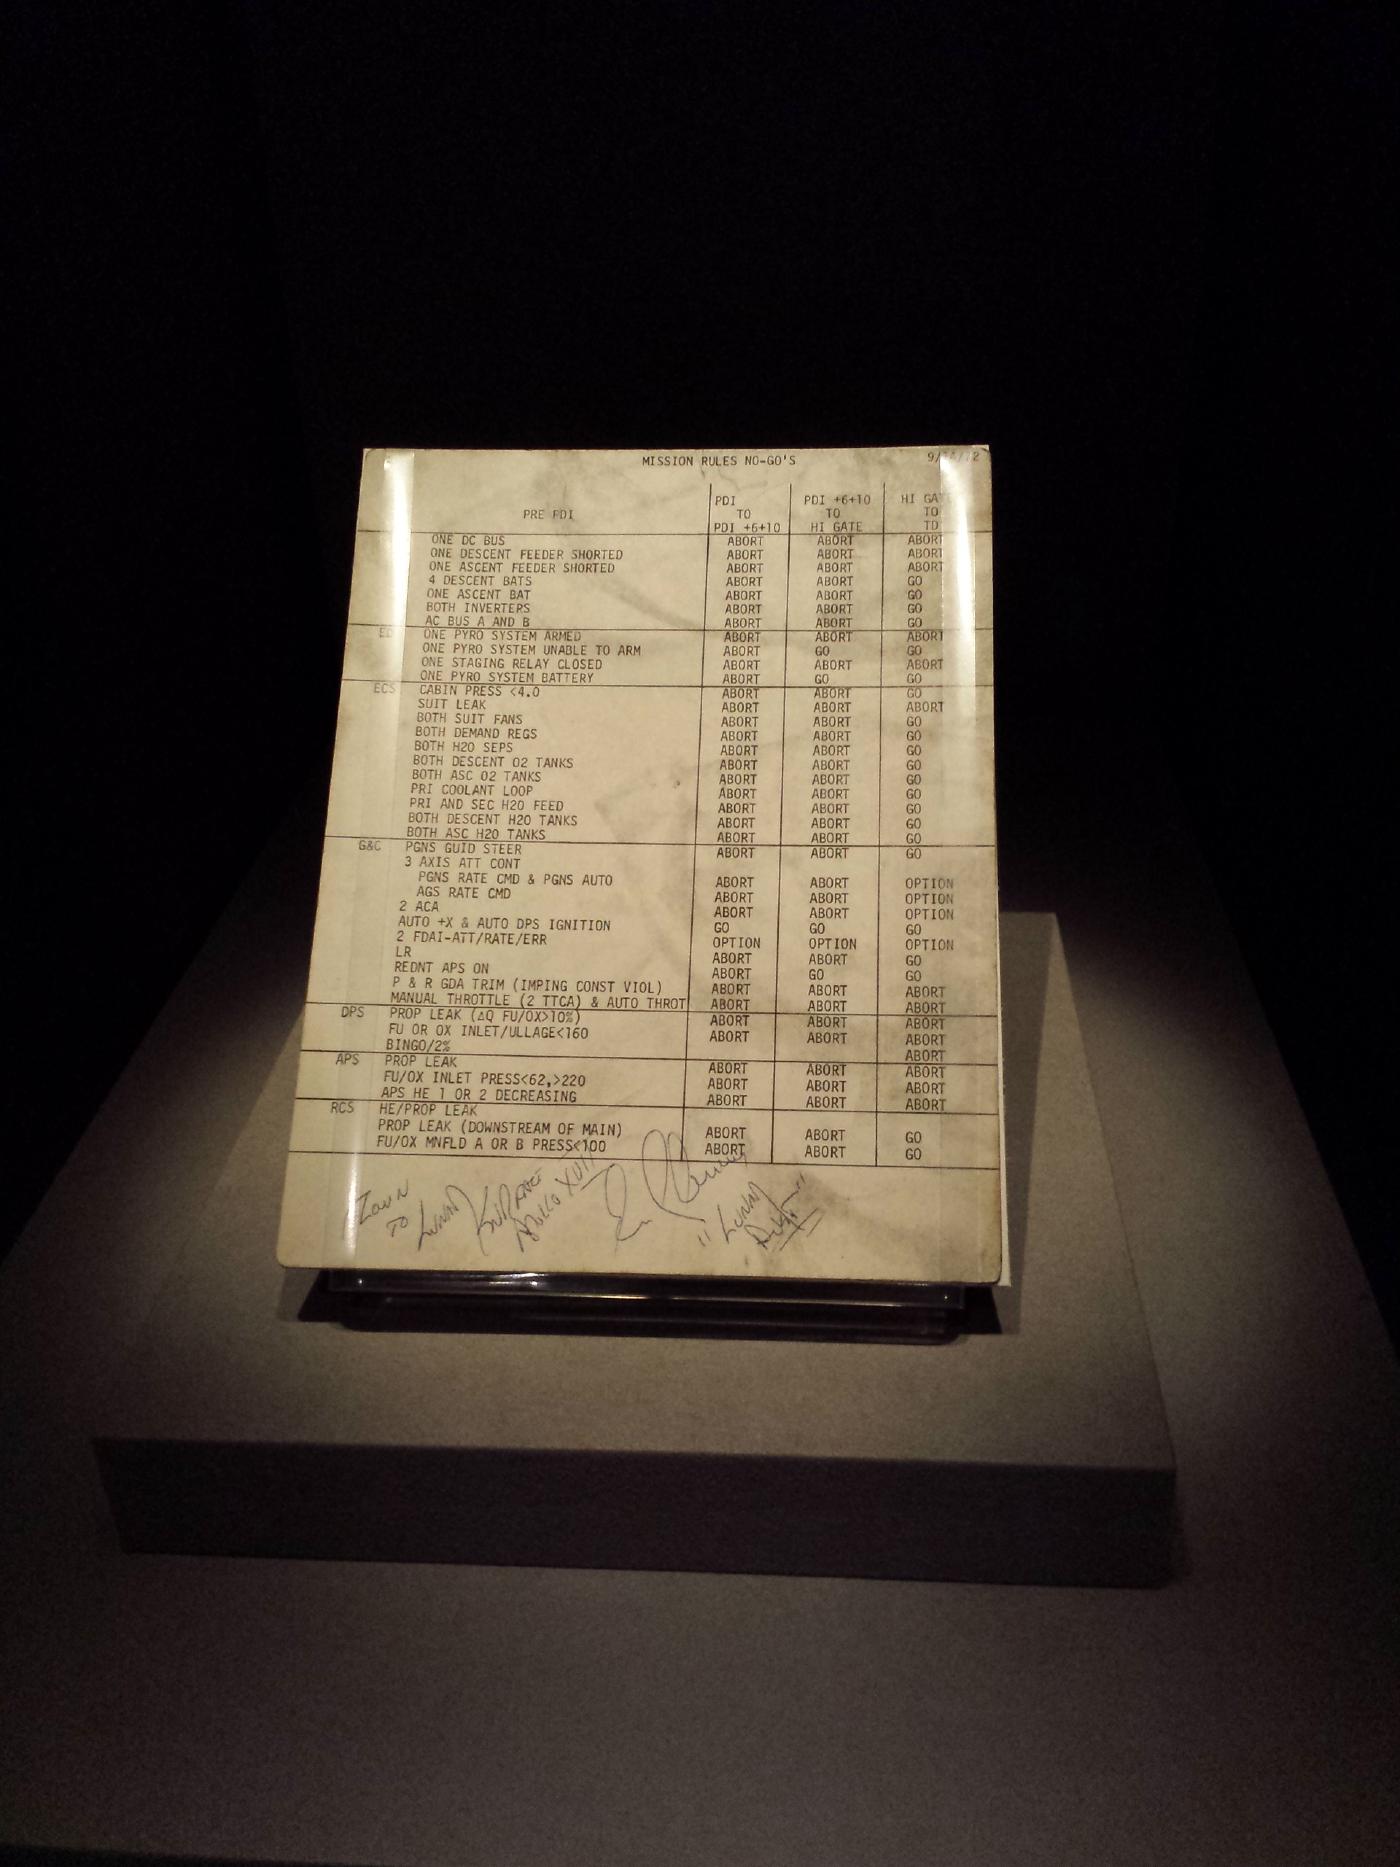 MISSION RULES NO-GO'S
PRE PDI PDI TO PDI +6+10 PDI +6+10 TO HI GATE HI GATE TO TD
ONE DC BUS ABORT ABORT ABORT
ONE DESCENT FEEDER SHORTED ABORT ABORT ABORT
ONE ASCENT FEEDER SHORTED ABORT ABORT ABORT
4 DESCENT BATS ABORT ABORT GO
ONE ASCENT BAT ABORT ABORT GO
BOTH INVERTERS ABORT ABORT GO
AC BUS A AND B ABORT ABORT GO
ED ONE PYRO SYSTEM ARMED ABORT ABORT ABORT
ONE PYRO SYSTEM UNABLE TO ARM ABORT GO GO
ONE STAGING RELAY CLOSED ABORT ABORT ABORT
ONE PYRO SYSTEM BATTERY ABORT GO GO
ECS CABIN PRESS <4.0 ABORT ABORT GO
SUIT LEAK ABORT ABORT ABORT
BOTH SUIT FANS ABORT ABORT GO
BOTH DEMAND REGS ABORT ABORT GO
BOTH H2O SEPS ABORT ABORT GO
BOTH DESCENT O2 TANKS ABORT ABORT GO
BOTH ASC O2 TANKS ABORT ABORT GO
PRI COOLANT LOOP ABORT ABORT GO
PRI AND SEC H2O FEED ABORT ABORT GO
BOTH DESCENT H2O TANKS ABORT ABORT GO
BOTH ASC H2O TANKS ABORT ABORT GO
G&C PGNS GUID STEER ABORT ABORT GO
3 AXIS ATT CONT
PGNS RATE CMD & PGNS AUTO ABORT ABORT OPTION
AGS RATE CMD ABORT ABORT OPTION
2 ACA ABORT ABORT OPTION
AUTO +X & AUTO DPS IGNITION GO GO GO
2 FDAI-ATT/RATE/ERR OPTION OPTION OPTION
LR ABORT ABORT GO
REDNT APS ON ABORT GO GO
P & R GDA TRIM (IMPING CONST VIOL) ABORT ABORT ABORT
MANUAL THROTTLE (2 TTCA) & AUTO THROT ABORT ABORT ABORT
DPS PROP LEAK (ΔQ FU/OX>10%) ABORT ABORT ABORT
FU OR OX INLET/ULLAGE<160 ABORT ABORT ABORT
BINGO/2% ABORT
APS PROP LEAK ABORT ABORT ABORT
FU/OX INLET PRESS<62,>220 ABORT ABORT ABORT
APS HE 1 OR 2 DECREASING ABORT ABORT ABORT
RCS HE/PROP LEAK
PROP LEAK (DOWNSTREAM OF MAIN) ABORT ABORT GO
FU/OX MNFLD A OR B PRESS<100 ABORT ABORT GO
TO LUNAR
APOLLO XVII